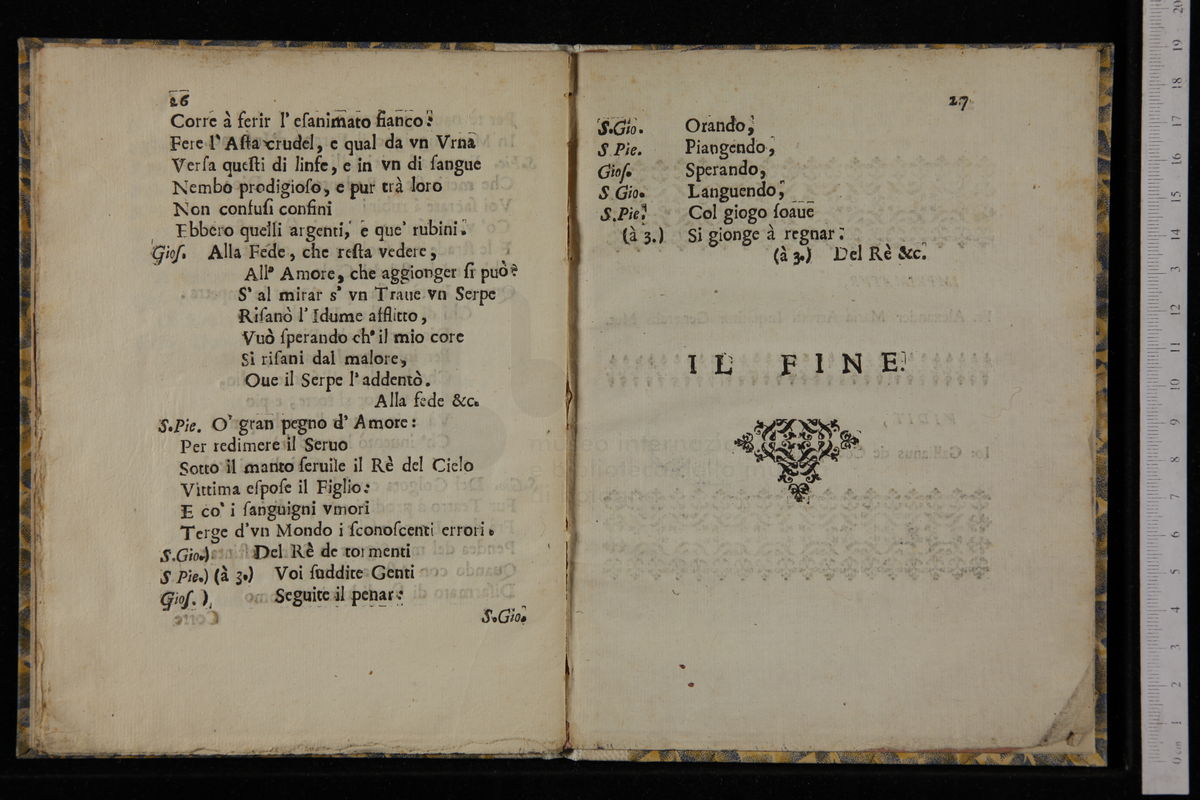 26
Corre à ferir l' eſanimato fianco?
Fere l' Aſta crudel, e qual da vn Vrna
Verſa queſti di linfe, e in vn di ſangue
Nembo prodigioſo, e pur trà loro
Non confuſi confini
Ebbero quelli argenti, e que' rubini.
Gioſ. Alla Fede, che reſta vedere,
All' Amore, che aggionger ſi può?
S' al mirar s' vn Traue vn Serpe
Riſanò l' Idume afflitto,
Vuò ſperando ch' il mio core
Si riſani dal malore,
Oue il Serpe l' addentò.
Alla fede &c.
S.Pie. O' gran pegno d' Amore:
Per redimere il Seruo
Sotto il manto ſeruile il Rè del Cielo
Vittima eſpoſe il Figlio:
E co' i ſanguigni vmori
Terge d'vn Mondo i ſconoſcenti errori.
S.Gio.) Del Rè de tormenti
S Pie.) (à 3.) Voi ſuddite Genti
Gioſ. ) Seguite il penar:
S.Gio.
27
S.Gio. Orando,
S Pie. Piangendo,
Gioſ. Sperando,
S Gio. Languendo,
S.Pie. Col giogo ſoaue
(à 3.) Si gionge à regnar:
(à 3.) Del Rè &c.
IL FINE.